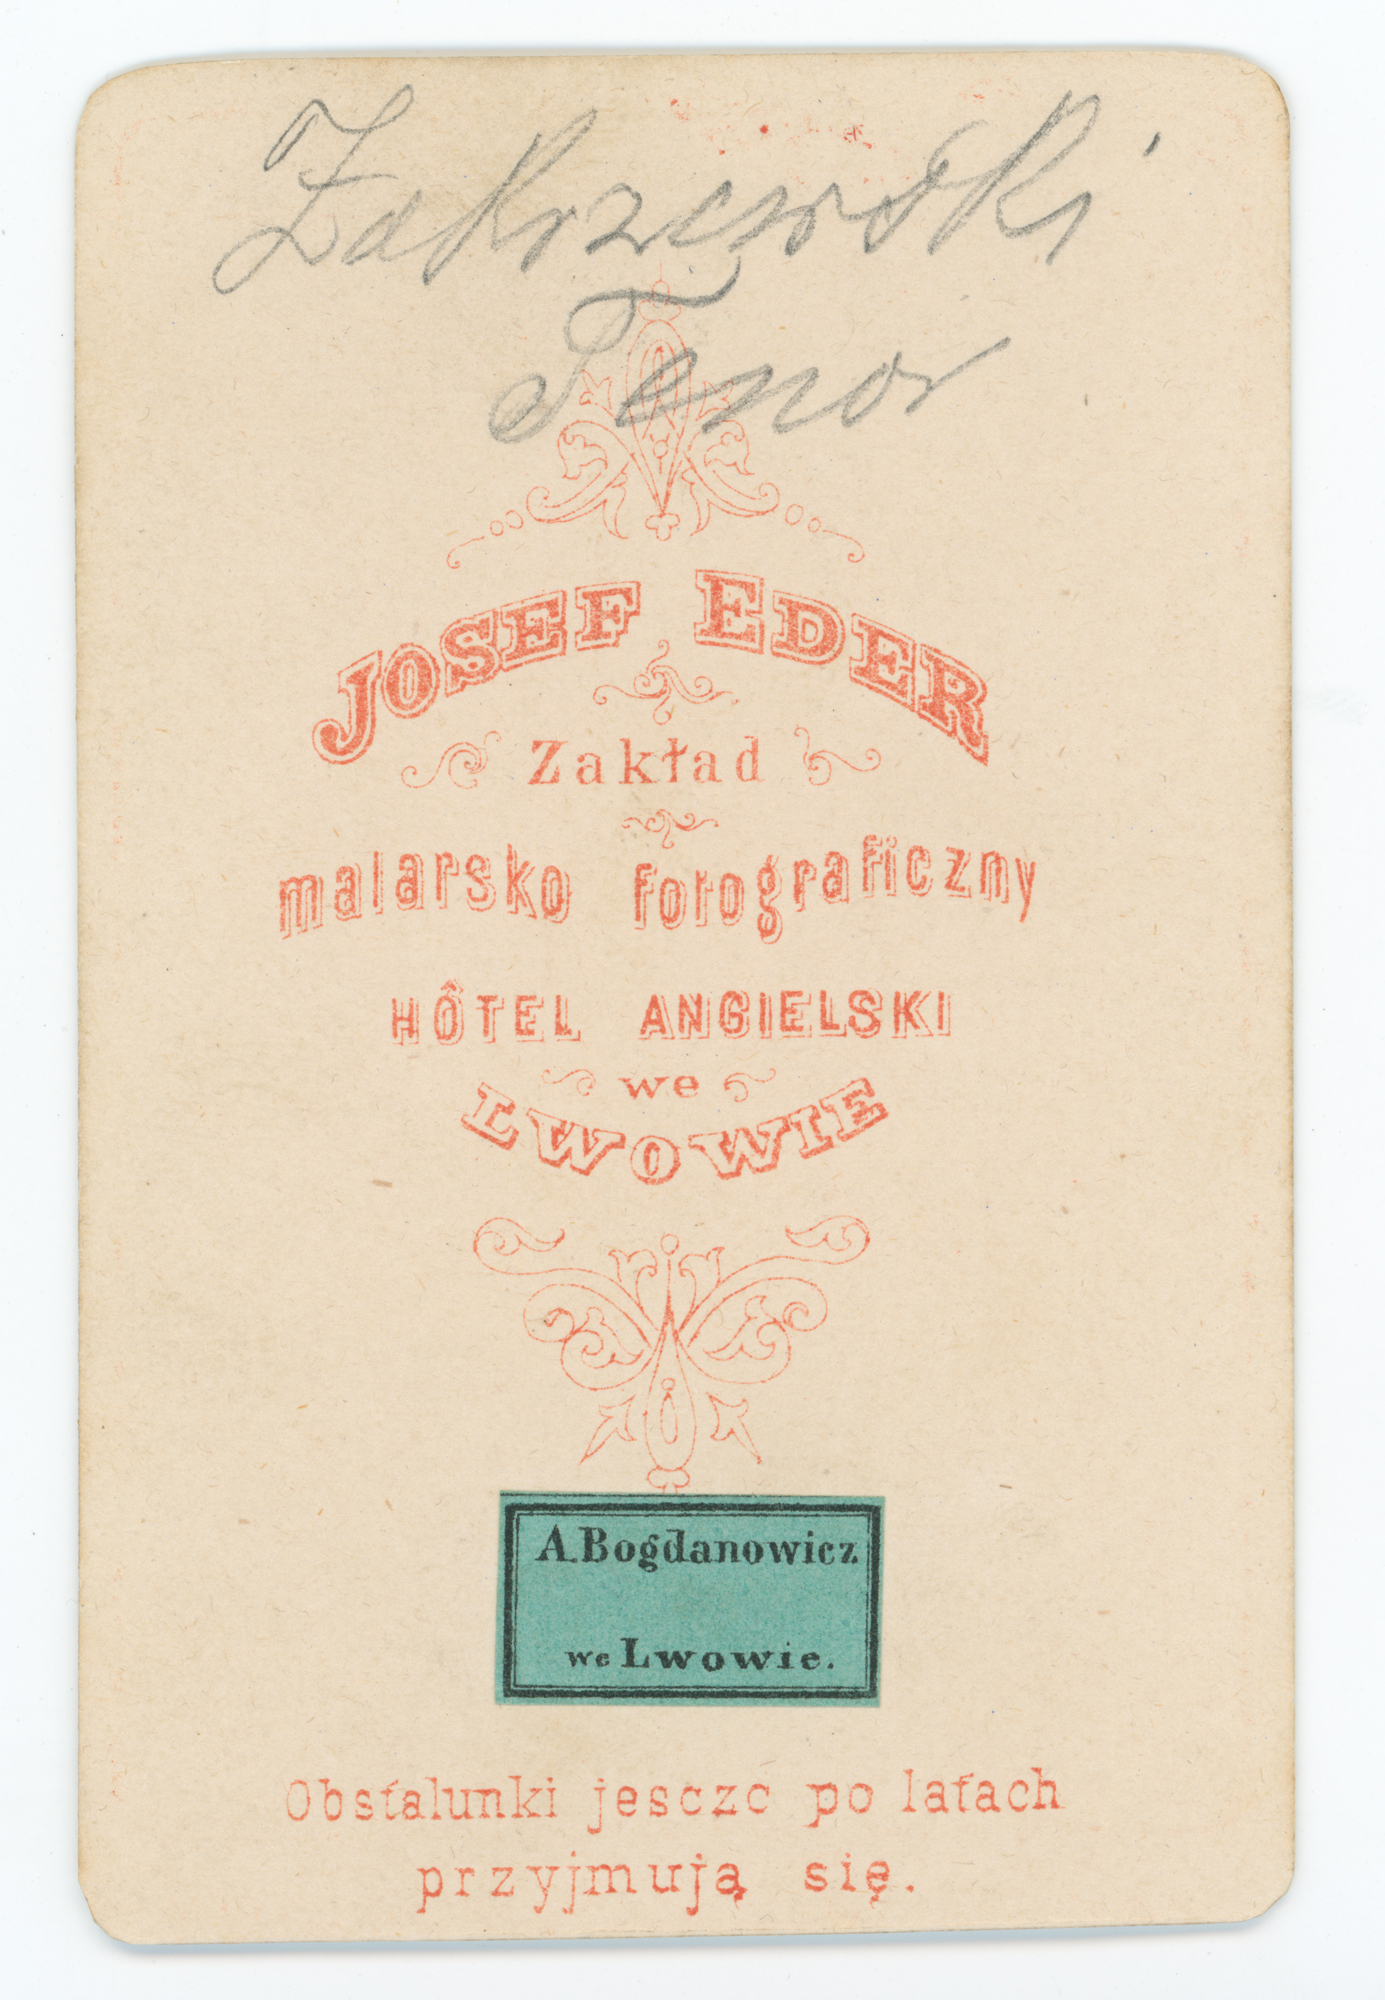 Zakrzewski
Tenor
JOSEF EDER
Zakład
malarsko fotograficzny
HÔTEL ANGIELSKI
we
LWOWIE
A. Bogdanowicz
we Lwowie.
Obstalunki jescze po latach
przyjmują się.